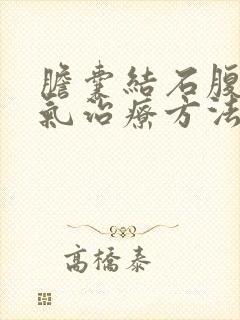 膽囊結石腹
氣治療方法
高橋泰